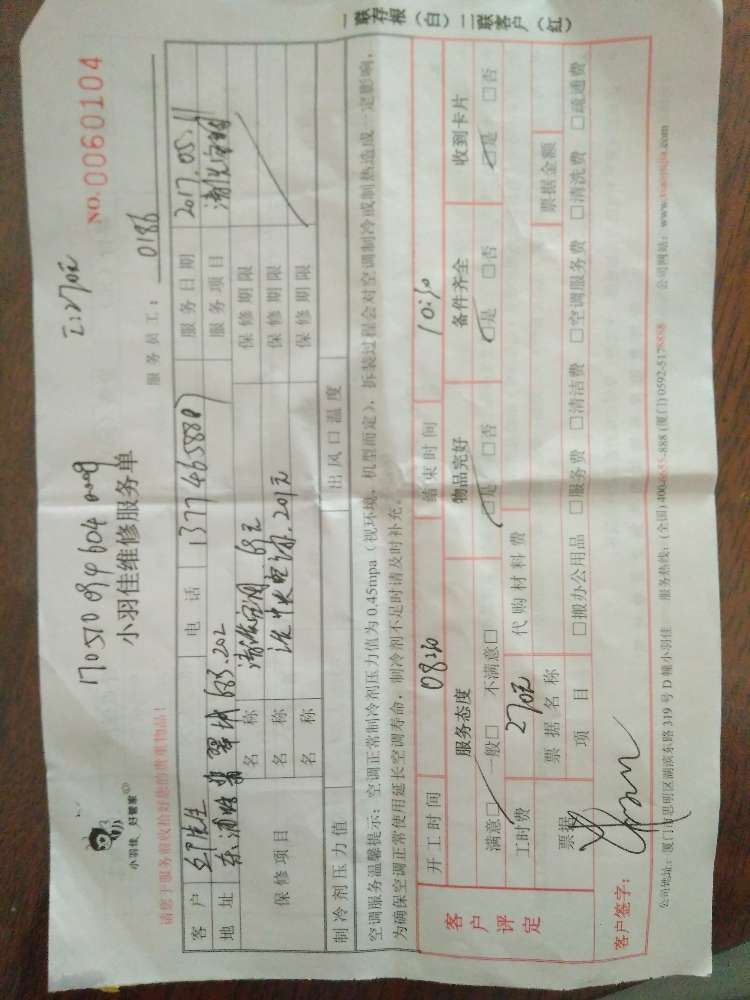 一联存根（白）二联客户（红）
小羽佳 好管家
17051009460400009
正:270元
NO.0060104
小羽佳维修服务单
服务员工： 0186
请您于服务前收拾好您的贵重物品！
客 户 邱先生 电 话 13774658807 服务日期 2017.05.11
地 址 东浦路翡翠城 683.202 服务项目 清洗空调
保修项目 名 称 清洗空调 69元 保修期限
名 称 201元 保修期限
名 称 保修期限
制冷剂压力值 出风口温度
空调服务温馨提示：空调正常制冷剂压力值为 0.45mpa（视环境、机型而定），拆装过程会对空调制冷或制热造成一定影响，
为确保空调正常使用延长空调寿命，制冷剂不足时请及时补充。
客户评定 开工时间 08:30 结束时间 10:30
服务态度 物品完好 备件齐全 收到卡片
满意□ 一般□ 不满意□ □是 □否 □是 □否 □是 □否
工时费 270元 代购材料费
票据 票据名称 票据金额
项 目 □搬办公用品 □服务费 □清洁费 □空调服务费 □清洗费 □疏通费
客户签字：
公司地址：厦门市思明区湖滨东路 319 号 D 幢小羽佳 服务热线：（全国）400-885-888（厦门）0592-5178888 公司网站：www.xiaoyujia.com